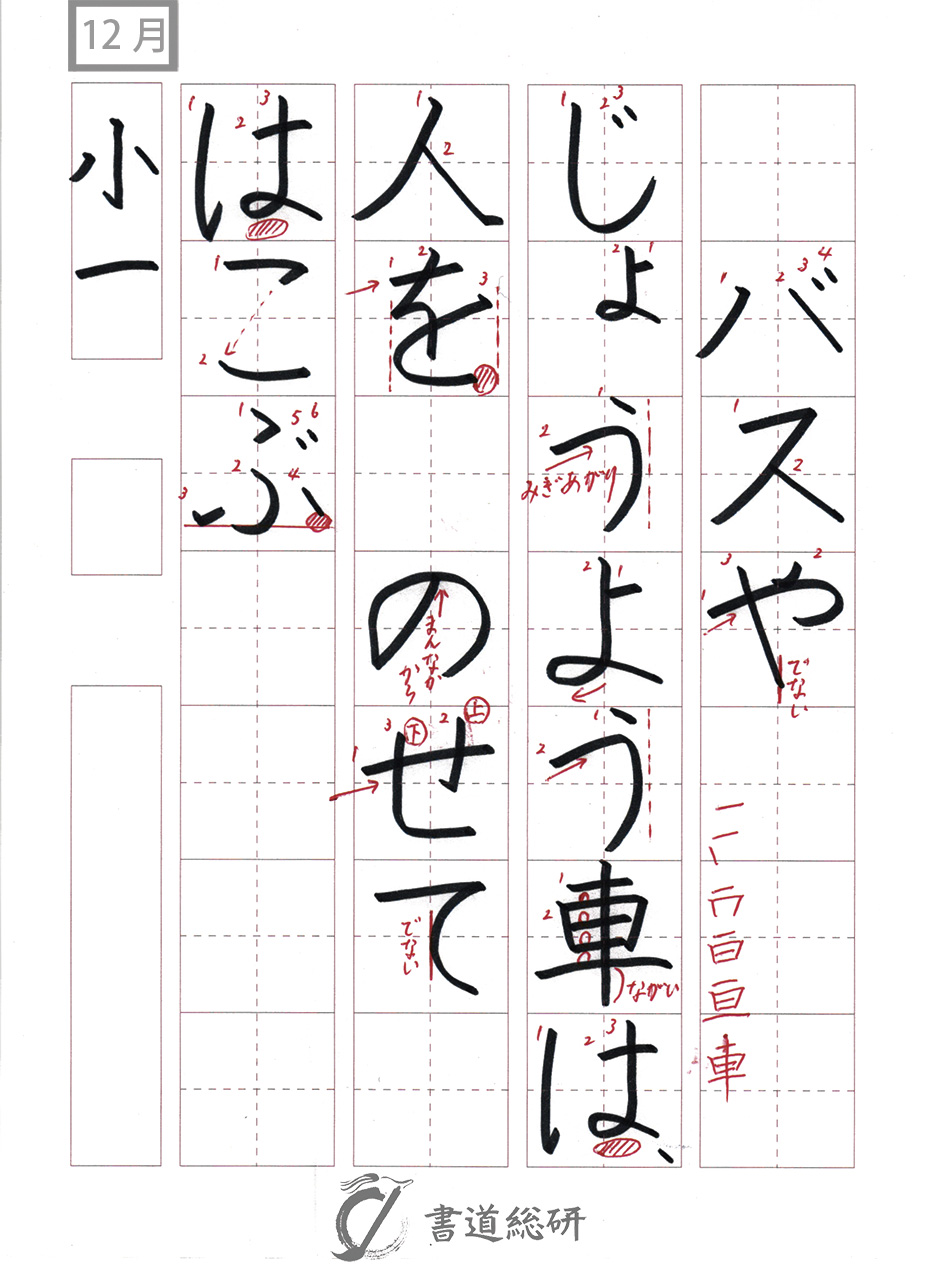 12月
バスや
じょうよう車は、
人を のせて
はこぶ
小一
みぎあがり
でない
まんなか
から
上
下
でない
ながい
車
書道総研